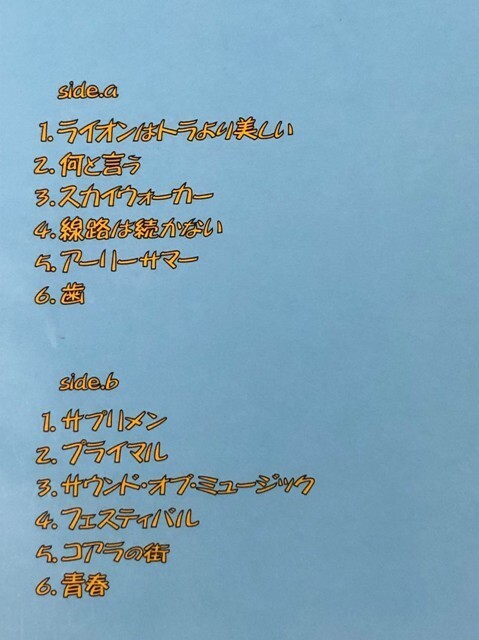 side.a
1.ライオンはトラより美しい
2.何と言う
3.スカイウォーカー
4.線路は続かない
5.アーリーサマー
6.歯
side.b
1.サプリメン
2.プライマル
3.サウンド・オブ・ミュージック
4.フェスティバル
5.コアラの街
6.青春